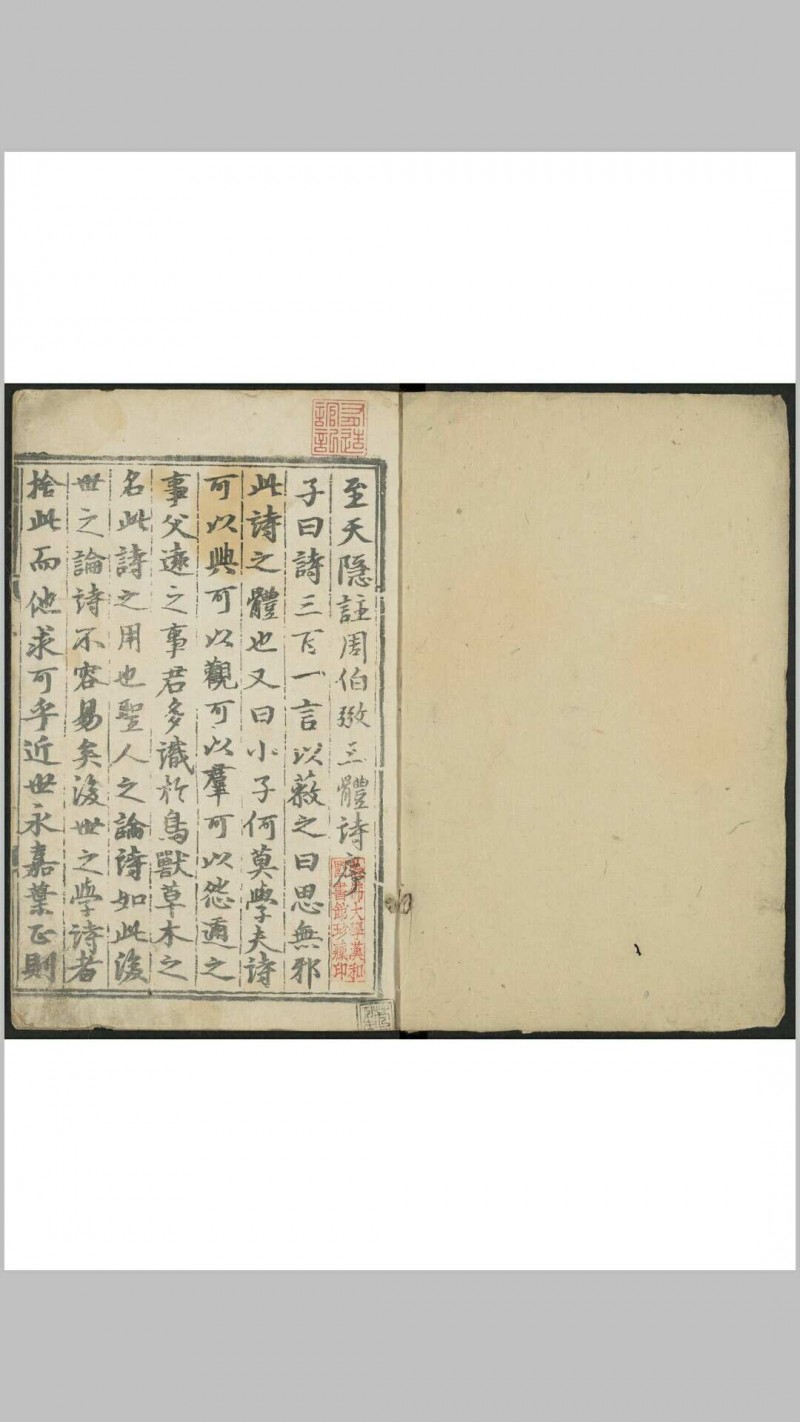 至天隱註周伯弜三體詩序
子曰詩三百一言以蔽之曰思無邪
此詩之體也又曰小子何莫學夫詩
可以興可以觀可以羣可以怨邇之
事父遠之事君多識於鳥獸草木之
名此詩之用也聖人之論詩如此後
世之論詩不容易矣後世之學詩者
捨此而他求可乎近世永嘉葉正則
大學漢和
圖書館珍藏印